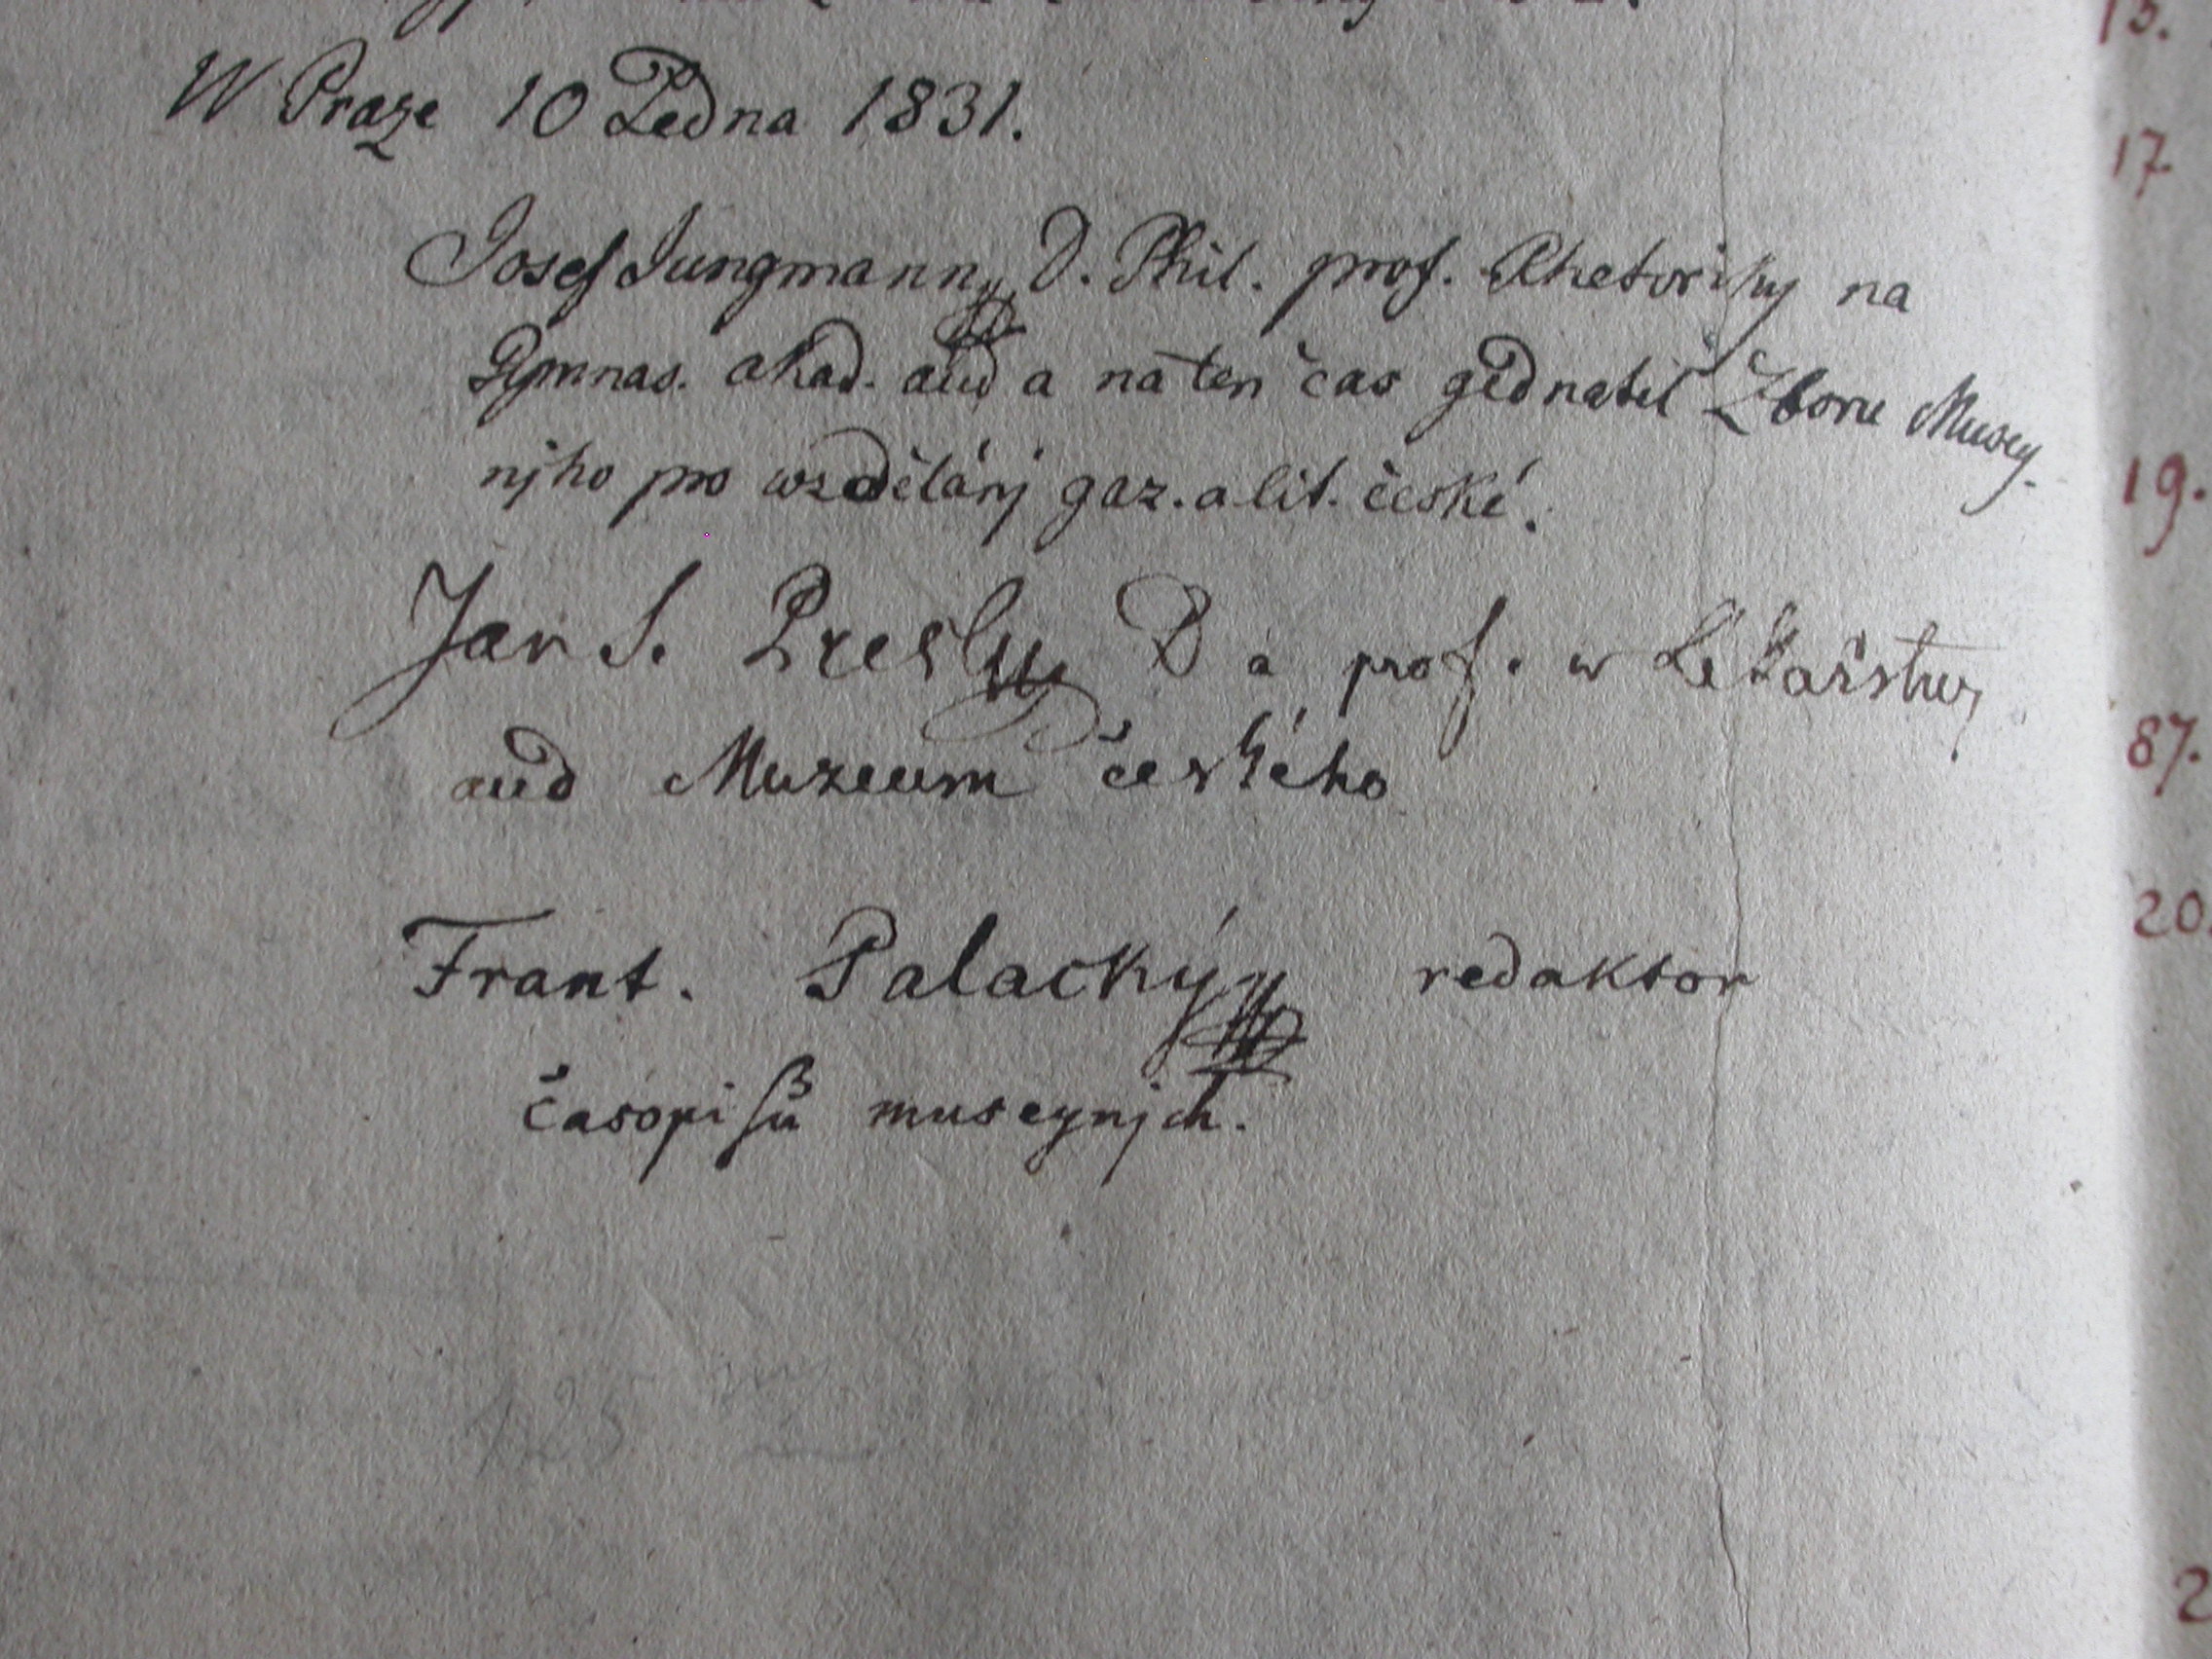 W Praze 10 Ledna 1831.
Josef Jungmann, D. Phil. prof. Rhetoriky na
Gymnas. akad. aud a na ten čas gednatel Zboru Musey-
njho pro wzdělánj gaz. a lit. české.
Jan S. Presl D a prof. w Lékařstwj
aud Muzeum českého
Frant. Palacký redaktor
časopisů museynjch.
125
15.
17.
19.
87.
20.
2